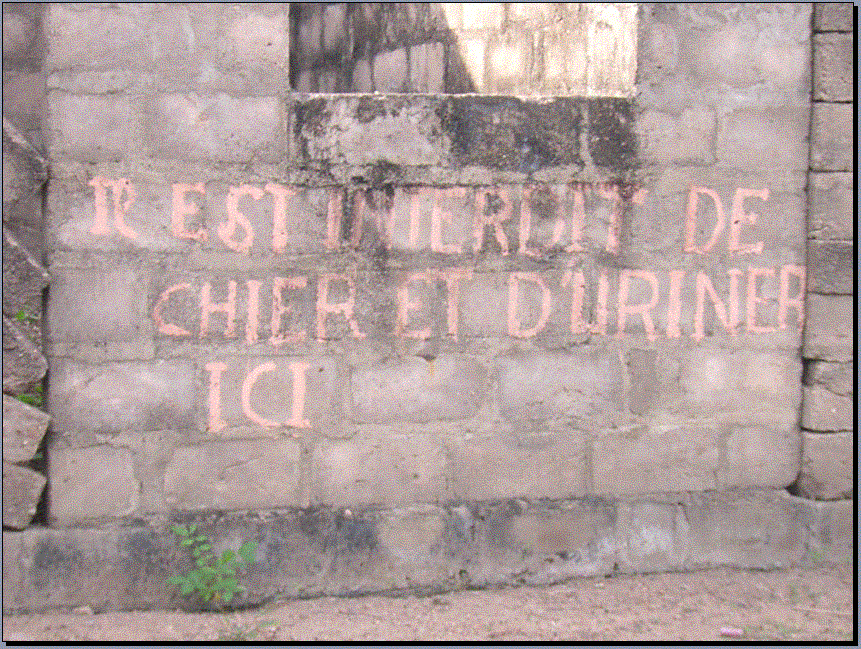 IL EST INTERDIT DE
CHIER ET D'URINER
ICI